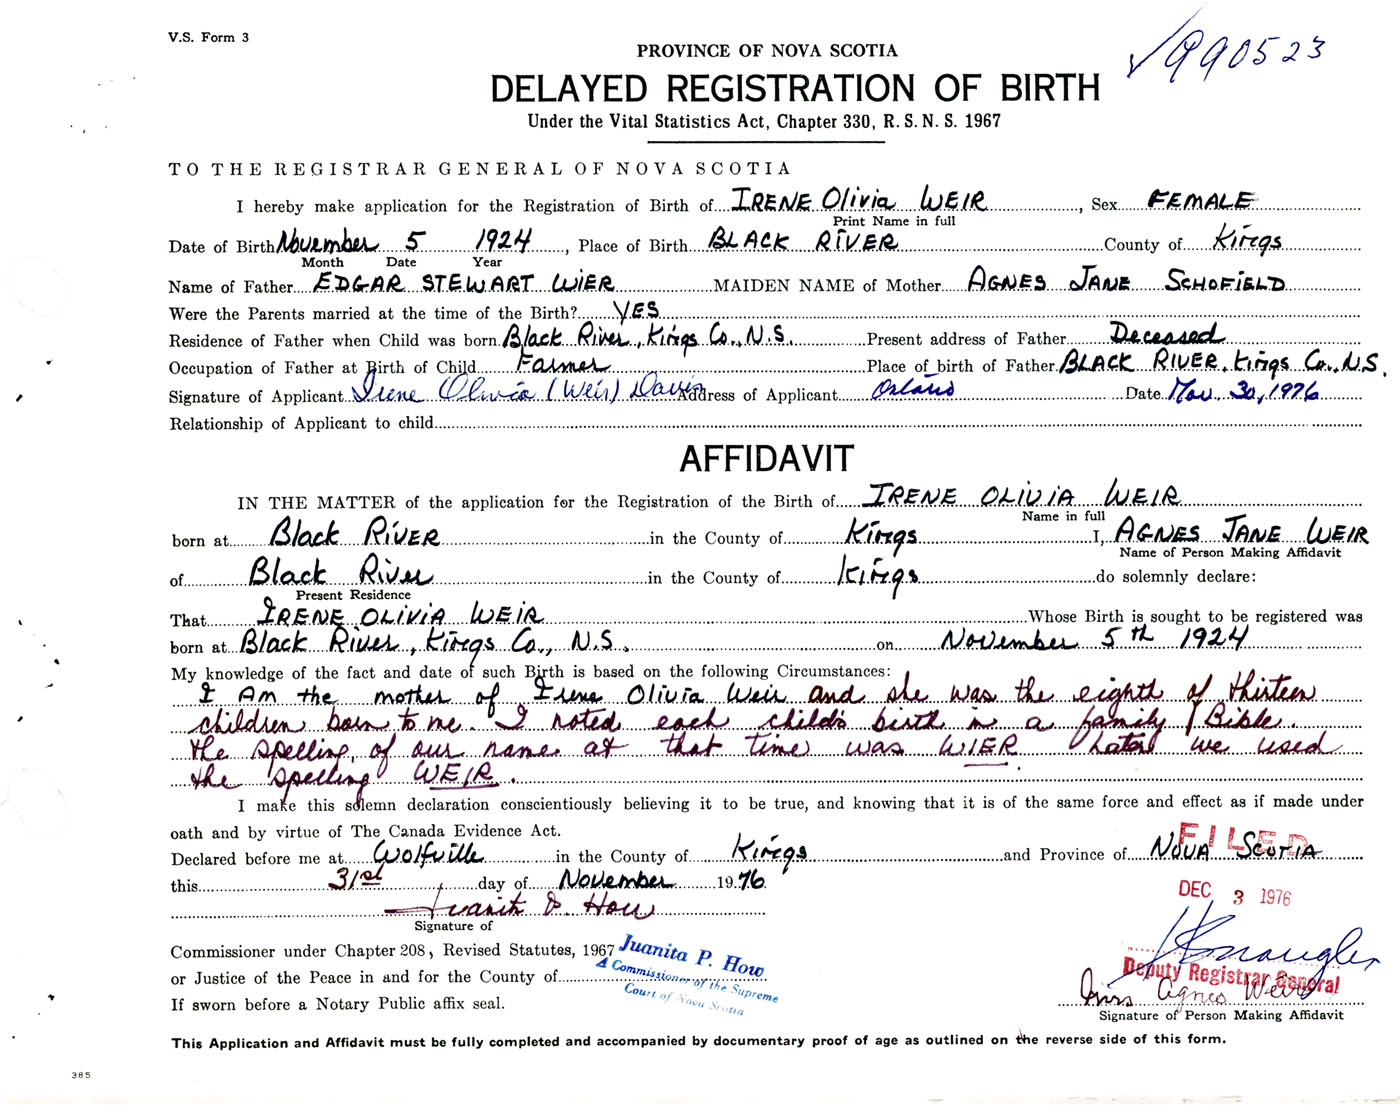 V.S. Form 3
990523
PROVINCE OF NOVA SCOTIA
DELAYED REGISTRATION OF BIRTH
Under the Vital Statistics Act, Chapter 330, R. S. N. S. 1967
TO THE REGISTRAR GENERAL OF NOVA SCOTIA
I hereby make application for the Registration of Birth of IRENE Olivia WEIR, Sex FEMALE
Print Name in full
Date of Birth November 5 1924, Place of Birth BLACK RIVER County of Kings
Month Date Year
Name of Father EDGAR STEWART WIER MAIDEN NAME of Mother AGNES JANE SCHOFIELD
Were the Parents married at the time of the Birth? YES
Residence of Father when Child was born Black River, Kings Co., N.S. Present address of Father Deceased
Occupation of Father at Birth of Child Farmer Place of birth of Father BLACK RIVER, Kings Co., N.S.
Signature of Applicant Irene Olivia (Weir) Davis Address of Applicant Ontario Date Nov. 30, 1976
Relationship of Applicant to child
AFFIDAVIT
IN THE MATTER of the application for the Registration of the Birth of IRENE OLIVIA WEIR
Name in full
born at Black RIVER in the County of Kings I, AGNES JANE WEIR
Name of Person Making Affidavit
of Black River in the County of Kings do solemnly declare:
Present Residence
That IRENE OLIVIA WEIR Whose Birth is sought to be registered was
born at Black River, Kings Co., N.S. on November 5th 1924
My knowledge of the fact and date of such Birth is based on the following Circumstances:
I am the mother of Irene Olivia Weir and she was the eighth of thirteen
children born to me. I noted each childs birth in a family Bible.
the spelling of our name at that time was WIER later we used
the spelling WEIR.
I make this solemn declaration conscientiously believing it to be true, and knowing that it is of the same force and effect as if made under
oath and by virtue of The Canada Evidence Act.
Declared before me at Wolfville in the County of Kings and Province of NOVA SCOTIA
FILED
this 31st day of November 1976
DEC 3 1976
Juanita P. How
Signature of
Commissioner under Chapter 208, Revised Statutes, 1967
Juanita P. How
A Commissioner of the Supreme
Court of Nova Scotia
or Justice of the Peace in and for the County of
Deputy Registrar General
If sworn before a Notary Public affix seal.
Mrs Agnes Weir
Signature of Person Making Affidavit
This Application and Affidavit must be fully completed and accompanied by documentary proof of age as outlined on the reverse side of this form.
385